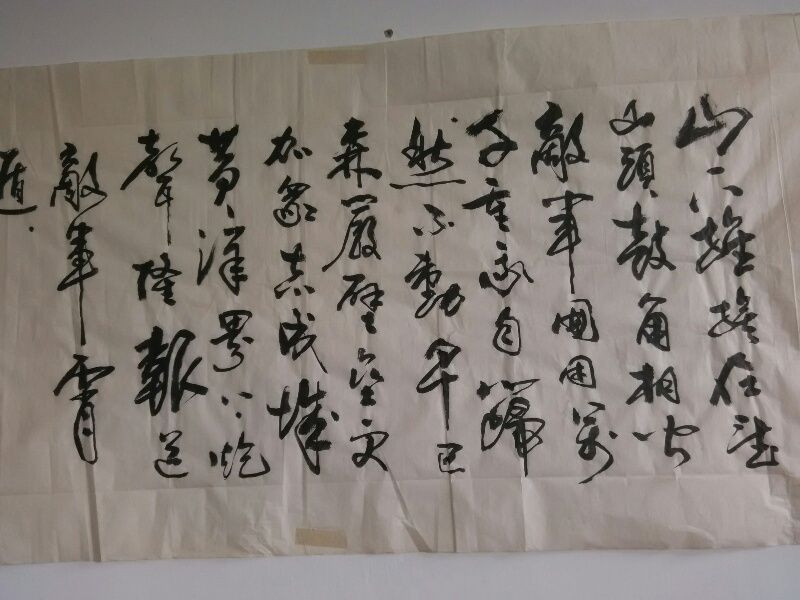 山下旌旗在望
山頭鼓角相聞
敵軍圍困萬
千重我自巋
然不動早已
森嚴壁壘更
加衆志成城
黄洋界上炮
聲隆報道
敵軍霄
遁